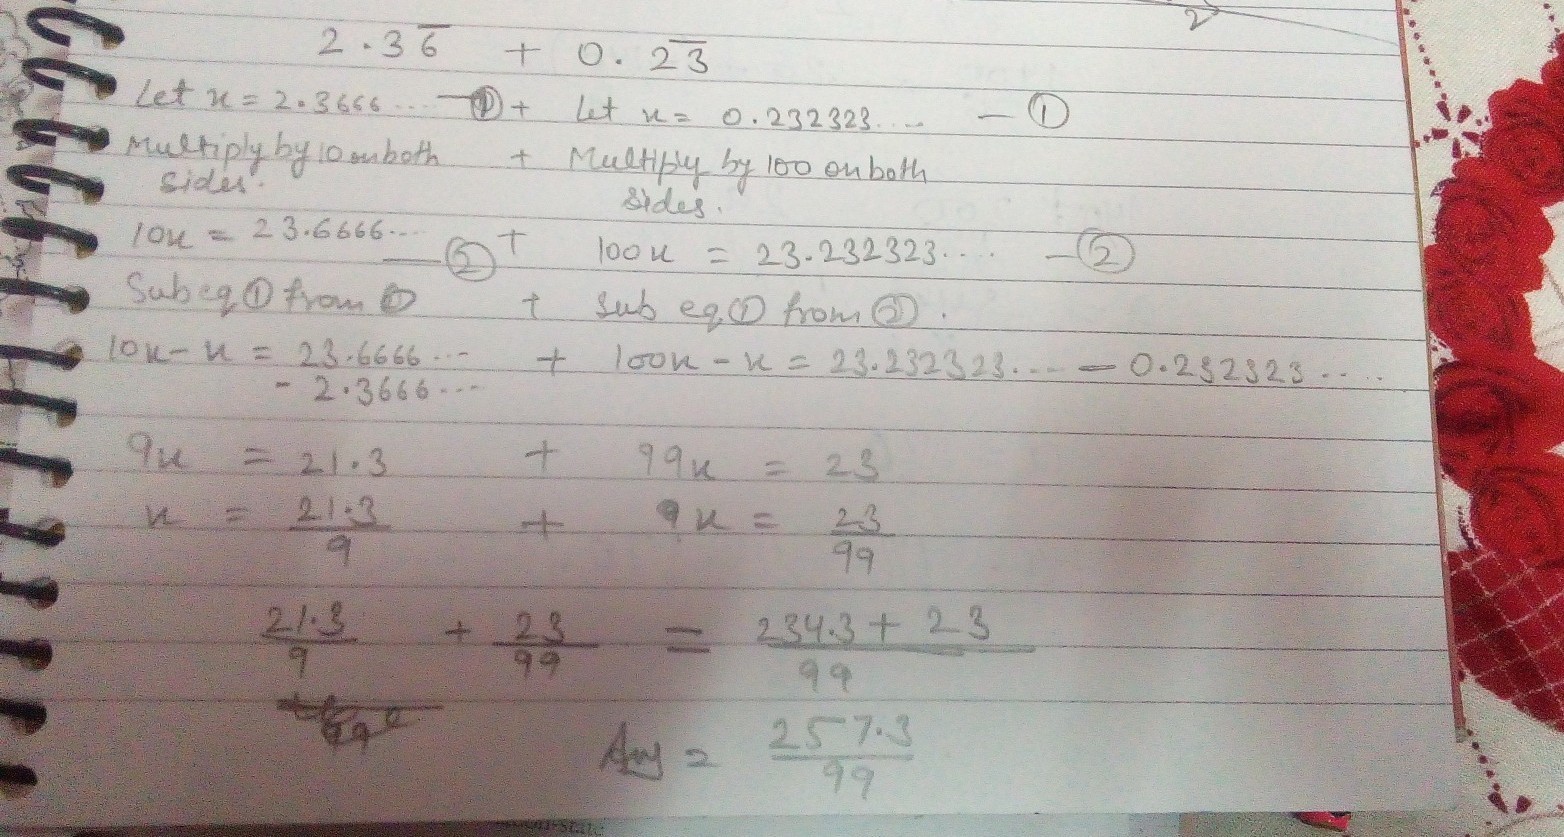 2
2.36̅ + 0.2̅3̅
Let x = 2.3666.... — ① + Let x = 0.232323.... — ①
Multiply by 10 on both + Multiply by 100 on both
sides. sides.
10x = 23.6666... — ② + 100x = 23.232323.... — ②
Sub eq ① from + sub eq ① from ② .
10x - x = 23.6666... + 100x - x = 23.232323.... — 0.232323....
- 2.3666...
9x = 21.3 + 99x = 23
x = 21.3/9 + 9x = 23/99
21.3/9 + 23/99 = 234.3 + 23/99
Ans = 257.3/99